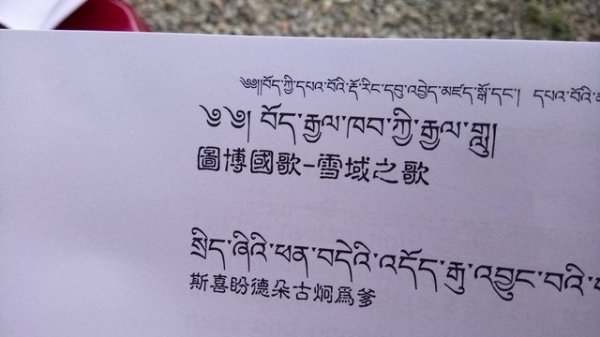 ༄༅།།བོད་ཀྱི་དཔའ་བོའི་རྡོ་རིང་དབུ་འབྱེད་མཛད་སྒོ་དང་། དཔའ་བོའི་
༄༅། བོད་རྒྱལ་ཁབ་ཀྱི་རྒྱལ་གླུ།
圖博國歌-雪域之歌
སྲིད་ཞིའི་ཕན་བདེའི་འདོད་རྒུ་འབྱུང་བའི་
斯喜盼德朵古炯爲爹